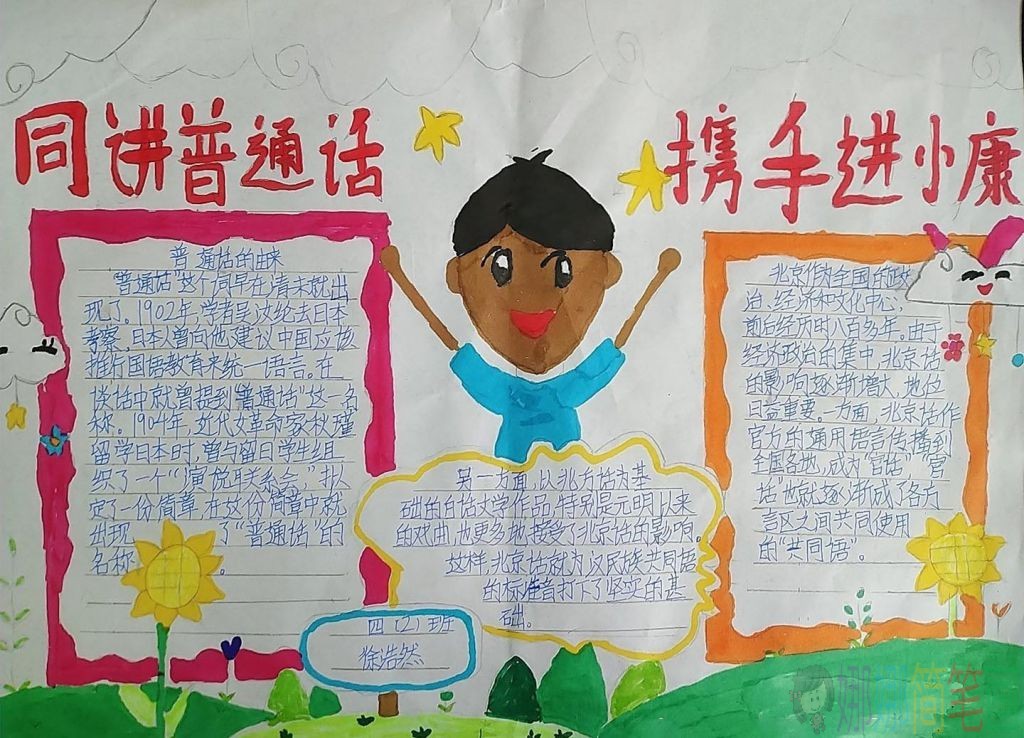 同讲普通话
携手进小康
普通话的由来
"普通话"这个词早在清末就出
现了。1902年,学者吴汝纶去日本
考察,日本人曾向他建议中国应该
推行国语教育来统一语言。在
谈话中就曾提到"普通话"这一名
称。1904年,近代女革命家秋瑾
留学日本时,曾与留日学生组
织了一个"演说联系会",拟
定了一份简章,在这份简章中就
出现了"普通话"的
名称。
另一方面,以北方话为基
础的白话文学作品,特别是元明以来
的戏曲,也更多地接受了北京话的影响。
这样,北京话就为汉民族共同语
的标准音打下了坚实的基
础。
北京作为全国的政
治、经济和文化中心,
前后经历时八百多年。由于
经济政治的集中,北京话
的影响逐渐增大,地位
日益重要。一方面,北京话作
官方的通用语言传播到
全国各地,成为"官话","官
话"也就逐渐成了各方
言区之间共同使用
的"共同语"。
四(2)班
徐浩然
简笔